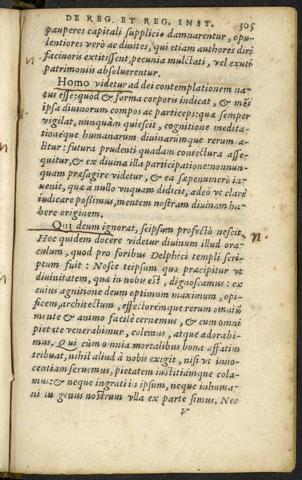 DE REG. ET REG. INST. 305
pauperes capitali supplicio damnarentur, opu-
lentiores verò ac diuites, qui etiam authores diri
facinoris extitissent, pecunia mulctati, vel exuti
patrimoniis absoluerentur.
Homo videtur ad dei contemplationem na-
tus esse: quod & forma corporis indicat, & mẽs
ipsa diuinorum compos ac particeps: quæ semper
vigilat, nunquam quiescit, cognitione medita-
tionéque humanarum diuinarúmque rerum a-
litur: futura prudenti quadam coniectura asse-
quitur, & ex diuina illa participatione: nonnun-
quam præsagire videtur, & ea sæpenumerò in-
uenit, quæ à nullo vnquam didicit, adeò vt clarè
iudicare possimus, mentem nostram diuinam ha-
bere originem.
Qui deum ignorat, seipsum profectò nescit.
Hoc quidem docere videtur diuinum illud ora-
culum, quod pro foribus Delphici templi scri-
ptum fuit: Nosce teipsum quo præcipitur vt
diuinitatem, quæ in nobis est, dignoscamus: ex
cuius agnitione deum optimum maximum, opi-
ficem, architectum, effectorémque rerum omniũ
mente & animo facilè cernemus, & cum omni
pietate venerabimur, colemus, atque adorabi-
mus. Qui cùm omnia mortalibus bona affatim
tribuat, nihil aliud à nobis exigit, nisi vt inno-
centiam seruemus, pietatem iustitiámque cola-
mus: & neque ingrati in ipsum, neque inhuma-
ni in genus nostrum vlla ex parte simus. Nec
V
n.